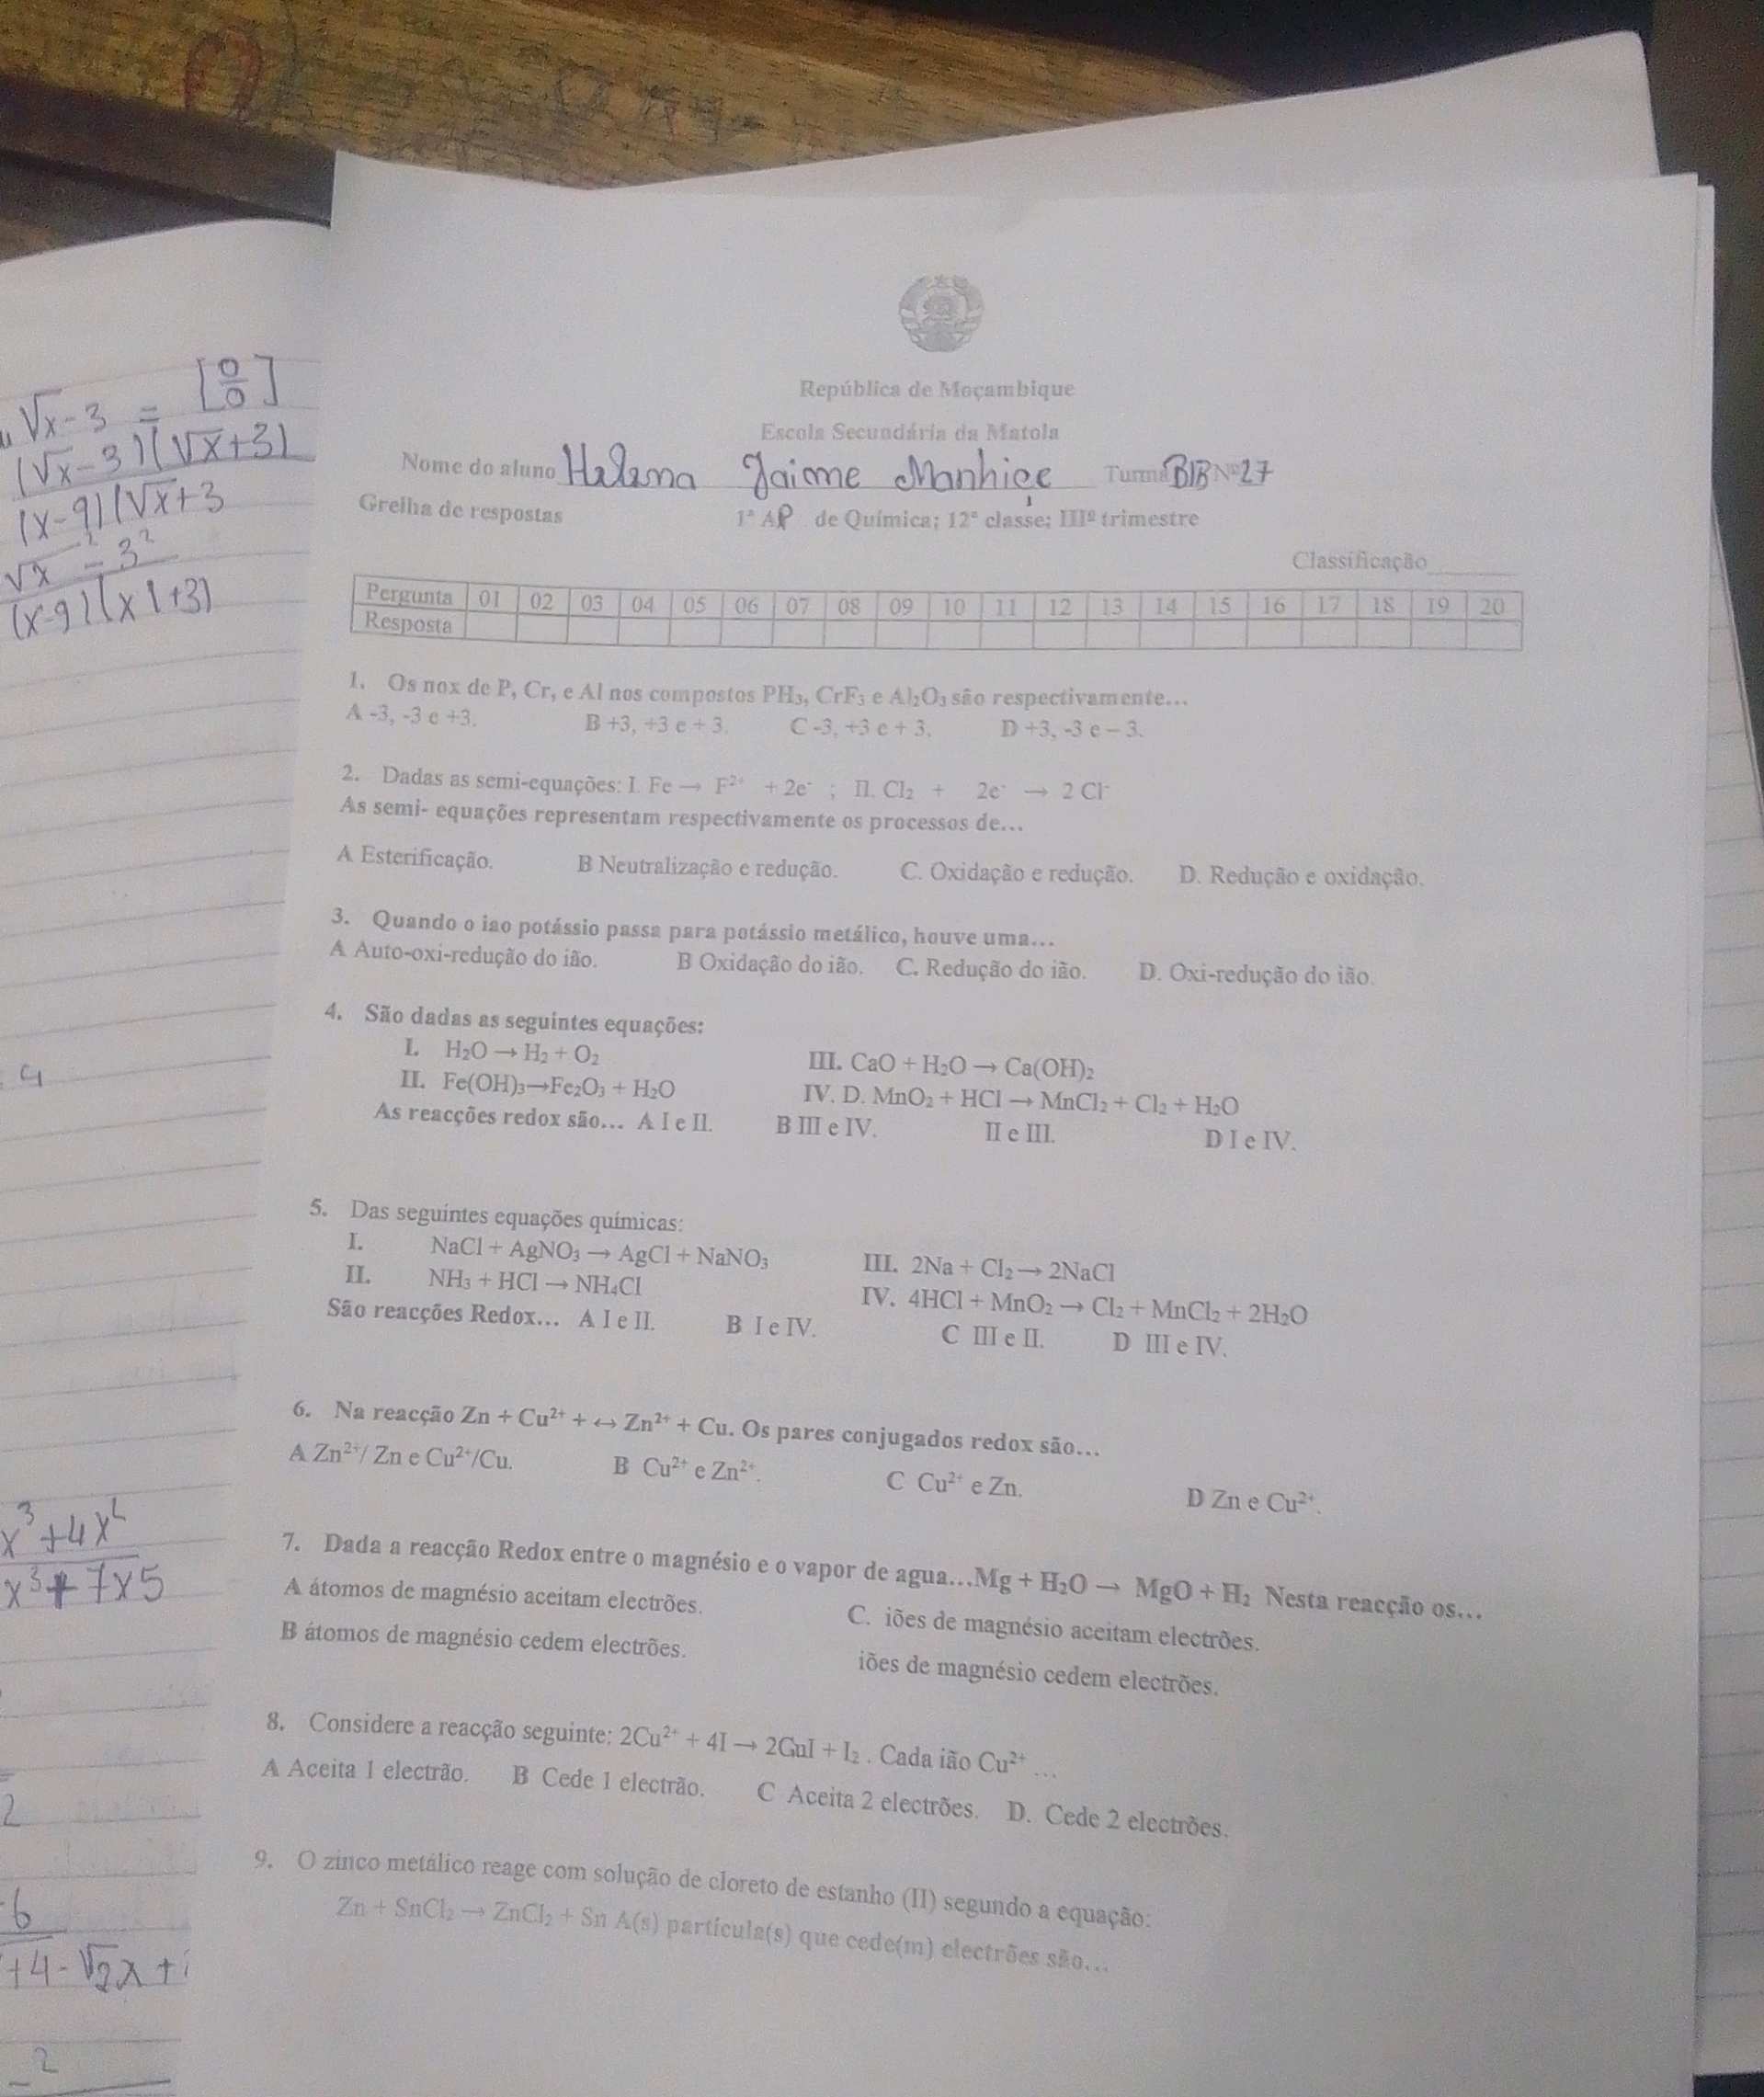 √x-3 = [0/0]
(√x-3)(√x+3)
(x-9)(√x+3
√x² - 3²
(x-9)(x1+3)
x³+4x²
x³+7x5
2
-6
+4-√2x+
2
República de Moçambique
Escola Secundária da Matola
Nome do aluno Helena Jaime Manhiçe Turma B1B Nº27
Grelha de respostas 1ª AP de Química; 12ª classe; IIIº trimestre
Classificação______
Pergunta 01 02 03 04 05 06 07 08 09 10 11 12 13 14 15 16 17 18 19 20
Resposta
1. Os nox de P, Cr, e Al nos compostos PH₃, CrF₃ e Al₂O₃ são respectivamente…
A -3, -3 e +3. B +3, +3 e + 3. C -3, +3 e + 3. D +3, -3 e – 3.
2. Dadas as semi-equações: I. Fe → F²⁺ + 2e⁻ ; II. Cl₂ + 2e⁻ → 2 Cl⁻
As semi- equações representam respectivamente os processos de…
A Esterificação. B Neutralização e redução. C. Oxidação e redução. D. Redução e oxidação.
3. Quando o iao potássio passa para potássio metálico, houve uma…
A Auto-oxi-redução do ião. B Oxidação do ião. C. Redução do ião. D. Oxi-redução do ião.
4. São dadas as seguintes equações:
I. H₂O → H₂ + O₂ III. CaO + H₂O → Ca(OH)₂
II. Fe(OH)₃→Fe₂O₃ + H₂O IV. D. MnO₂ + HCl → MnCl₂ + Cl₂ + H₂O
As reacções redox são… A I e II. B III e IV. II e III. D I e IV.
5. Das seguintes equações químicas:
I. NaCl + AgNO₃ → AgCl + NaNO₃ III. 2Na + Cl₂ → 2NaCl
II. NH₃ + HCl → NH₄Cl IV. 4HCl + MnO₂ → Cl₂ + MnCl₂ + 2H₂O
São reacções Redox… A I e II. B I e IV. C III e II. D III e IV.
6. Na reacção Zn + Cu²⁺ + ↔ Zn²⁺ + Cu. Os pares conjugados redox são…
A Zn²⁺/ Zn e Cu²⁺/Cu. B Cu²⁺ e Zn²⁺. C Cu²⁺ e Zn. D Zn e Cu²⁺.
7. Dada a reacção Redox entre o magnésio e o vapor de agua…Mg + H₂O → MgO + H₂ Nesta reacção os…
A átomos de magnésio aceitam electrões. C. iões de magnésio aceitam electrões.
B átomos de magnésio cedem electrões. iões de magnésio cedem electrões.
8. Considere a reacção seguinte: 2Cu²⁺ + 4I → 2GuI + I₂ . Cada ião Cu²⁺ …
A Aceita 1 electrão. B Cede 1 electrão. C Aceita 2 electrões. D. Cede 2 electrões.
9. O zinco metálico reage com solução de cloreto de estanho (II) segundo a equação:
Zn + SnCl₂ → ZnCl₂ + Sn A(s) partícula(s) que cede(m) electrões são…